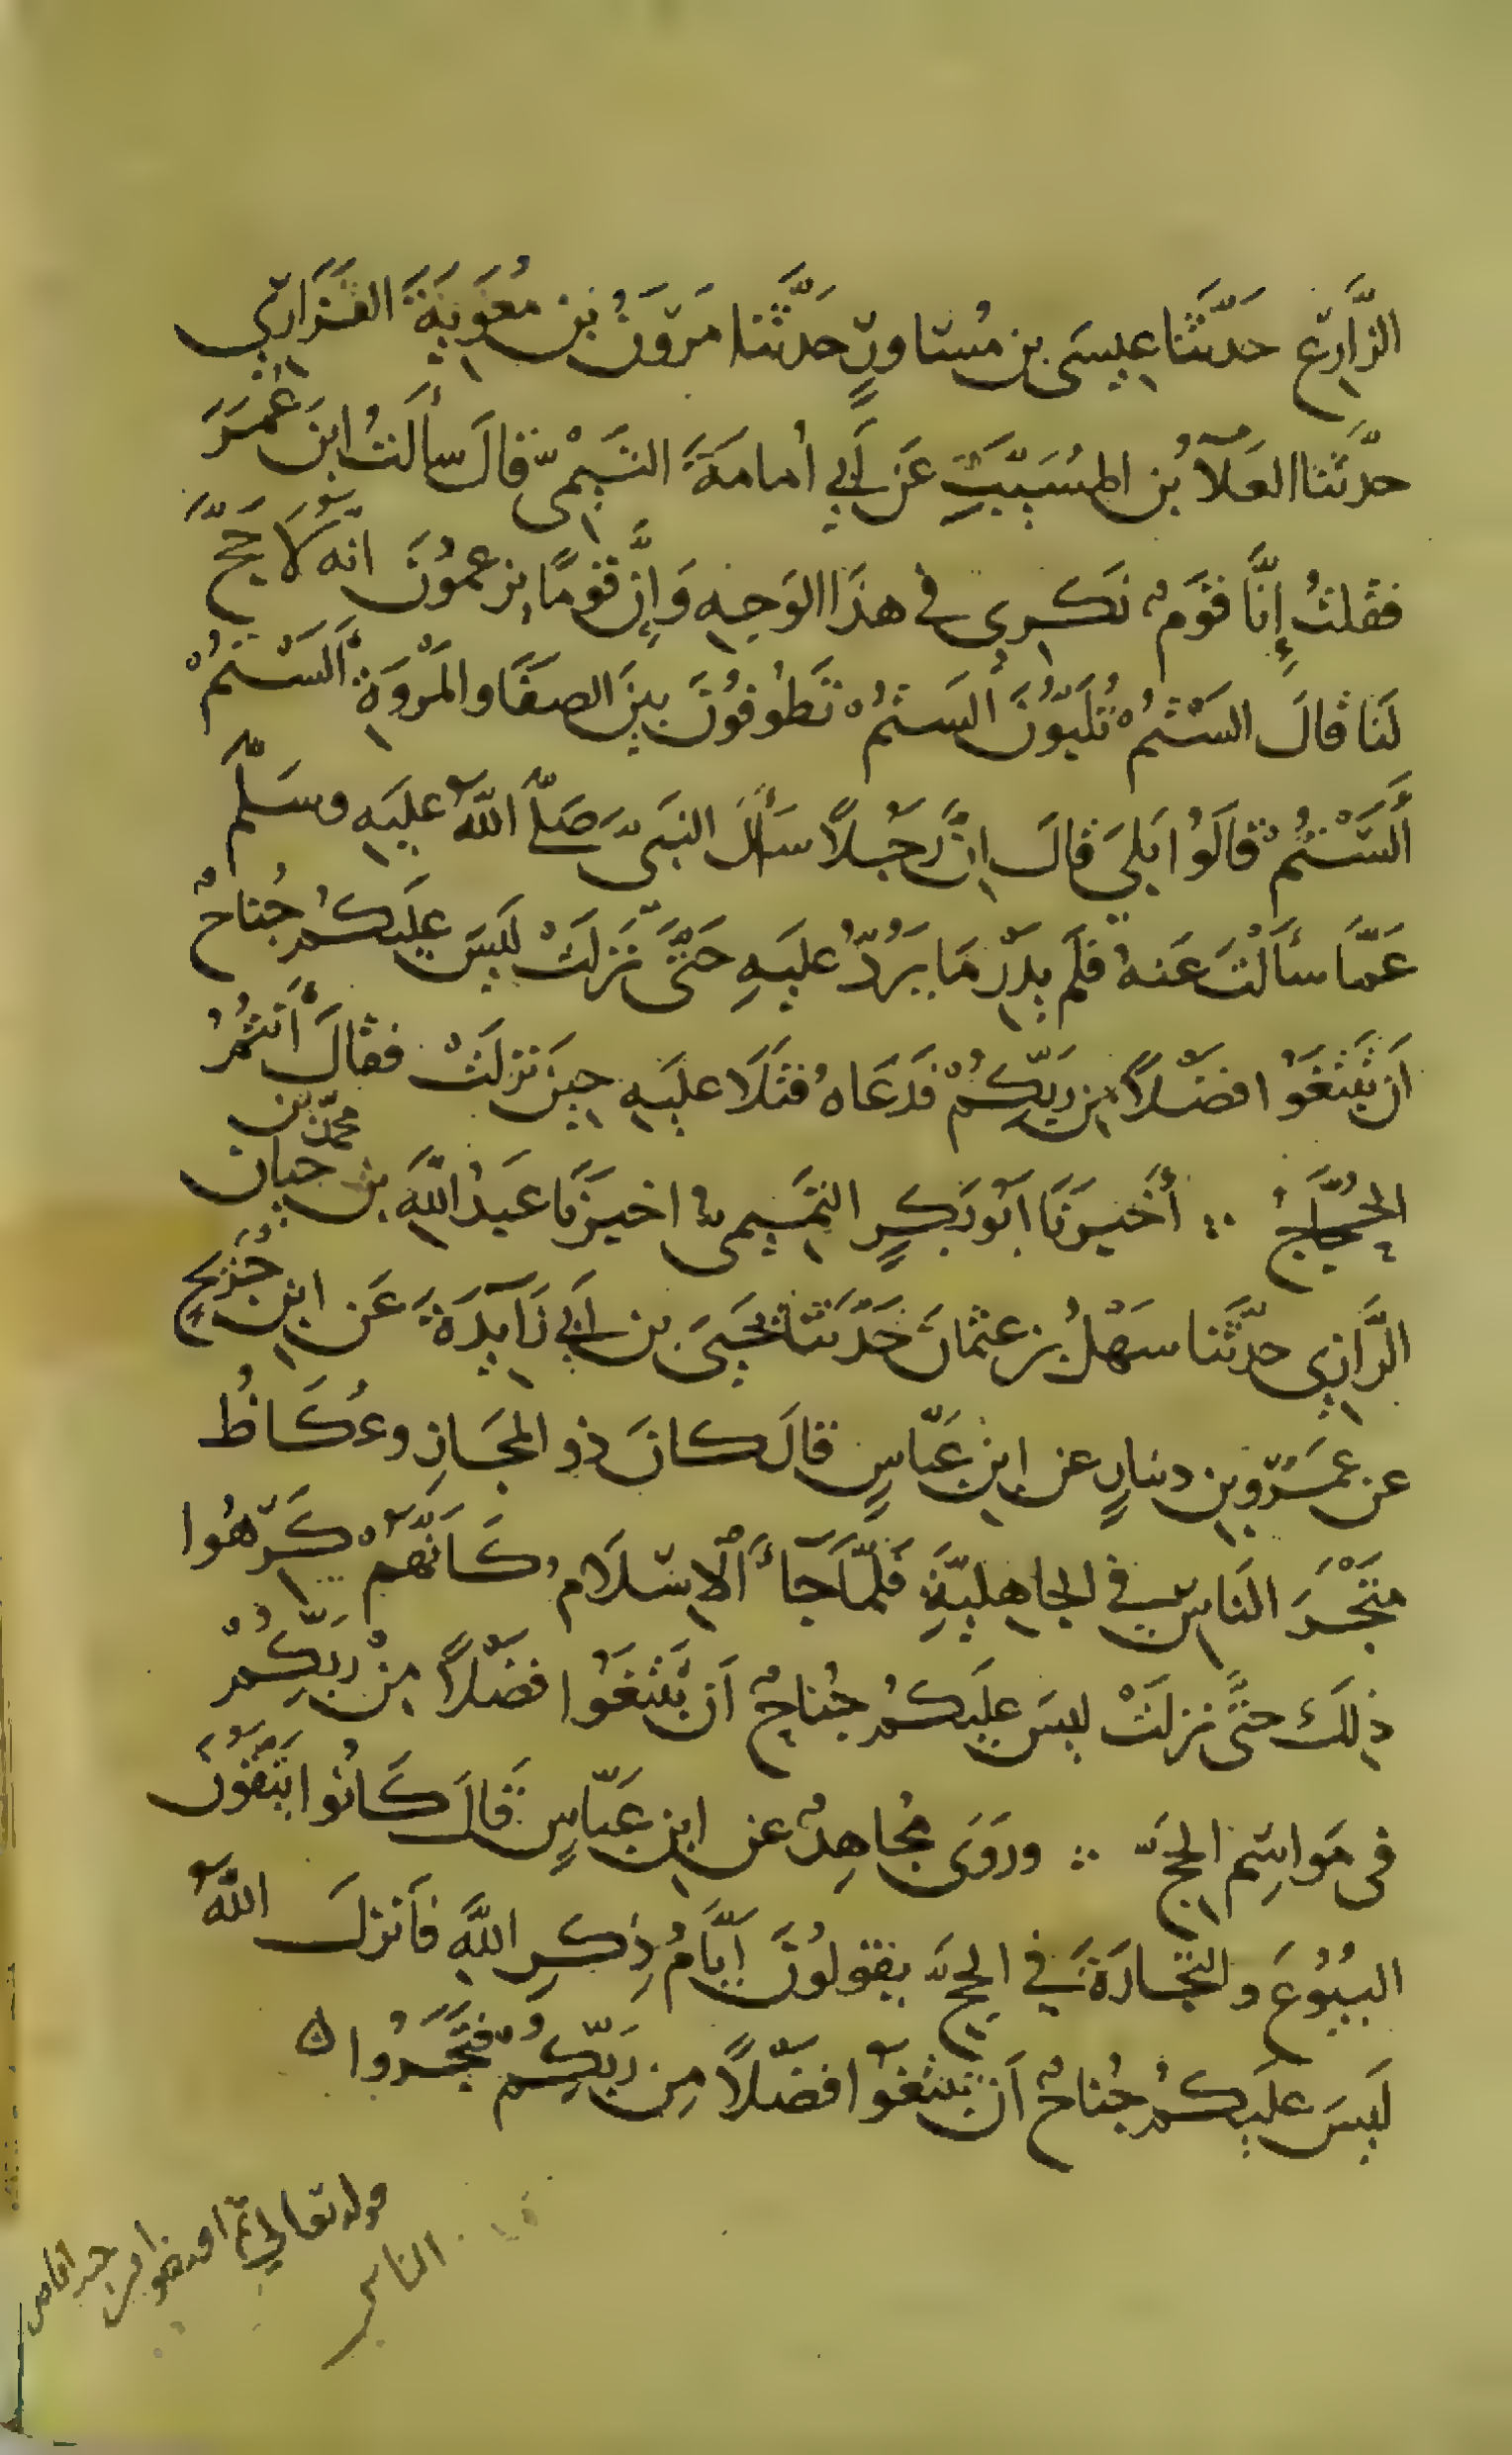 الزَّارِع حَدَّثَنا عِيسَى بن مُسَاوِرٍ حَدَّثَنا مَروَنُ بن مُعَوِيَةَ الفَزَارِيّ
حدَّثَنا العَلَآءُ بن المُسَيَّبِ عَن أَبِي أُمامَةَ التَّيْمِىّ قالَ سأَلتُ ابنَ عُمَرَ
فقلتُ إِنَّا قَومٌ نَكرِى فى هذَا الوَجهِ وَإِنَّ قَومًا يزعمُونَ انّه لَا حَجَّ
لَنَا قالَ السْتُمْ تُلَبُّونَ أَلَستُمْ تَطُوفُونَ بينَ الصفَا والمَرْوَةِ أَلَسْتُمْ
أَلَسْتُمْ قَالُوا بَلَى قالَ إنَّ رَجُلًا سَأَلَ النبَىَّ صَلَّى اللهُ عليَهِ وسَلّمَ
عَمَّا سأَلْتَ عَنهُ فلَم يدْرِ مَا يَرُدُّ عليَهِ حَتَّى نَزلَتْ لَيسَ عليَكُم جُناحٌ
أَن تَبْتَغُوا فضْلاً مِن رَبّكُمْ فَدَعَاهُ فتَلَا عليَهِ حِينَ نزلَتْ فقالَ أَنْتُمُ
الحُجَّاجُ ∴ أَخبرَنَا أبُو بَكرٍ التمِيمىُّ اخبرَنَا عَبدُ اللهِ بن محمّد بن حيان
الرَّازِى حدَّثَنا سَهْلُ بن عثمانَ حَدَّثَنا يَحيَى بن أَبِي زَآيِدَةَ عَن ابنِ جُرَيجٍ
عن عمَرٍو بن دينارٍ عن ابنِ عَبّاسٍ قالَ كانَ ذو المجَازِ وعُكَاظُ
مَتْجَرَ النَاسِ فى الجاهليّةِ فَلَمّا جَآءَ الإِسْلَامُ كَأَنَّهُمْ كَرِهُوا
ذلِكَ حتَّى نزلَتْ ليسَ عليَكُم جُناحٌ أَن تَبْتَغُوا فضْلاً مِنْ رَبّكُمْ
فى مَواسِم الحجّ ∴ ورَوَى مُجاهِدٌ عن ابنِ عَبّاسٍ قَالَ كَانُوا يَتَّقُونَ
البيُوعَ والتجَارَةَ فِي الحجّ يقولُونَ أَيَّامُ ذِكرِ اللهِ فأَنزلَ اللهُ
لَيسَ عليَكُم جُناحٌ أَن تَبتَغُوا فضْلاً مِن رَبّكُمْ فتَجَرُوا ه
قوله تعالى ثم افيضوا من حيث افاض
الناس